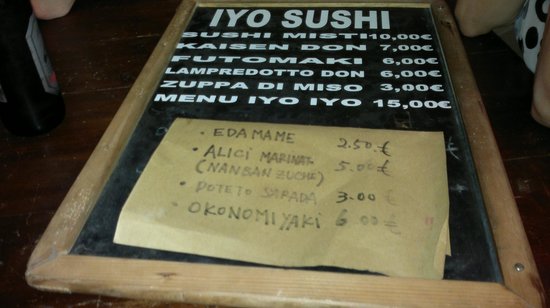 IYO SUSHI
SUSHI MISTI 10,00€
KAISEN DON 7,00€
FUTOMAKI 6,00€
LAMPREDOTTO DON 6,00€
ZUPPA DI MISO 3,00€
MENU IYO IYO 15,00€
• EDAMAME 2.50.€
• ALICI MARINAT. 5.00€
(NANBANZUCHE)
• POTETO SARADA 3.00€
• OKONOMIYAKI 6.00€